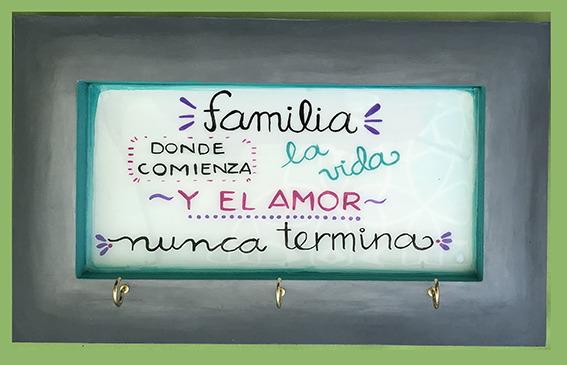 familia
DONDE
COMIENZA
la
vida
~Y EL AMOR~
nunca termina